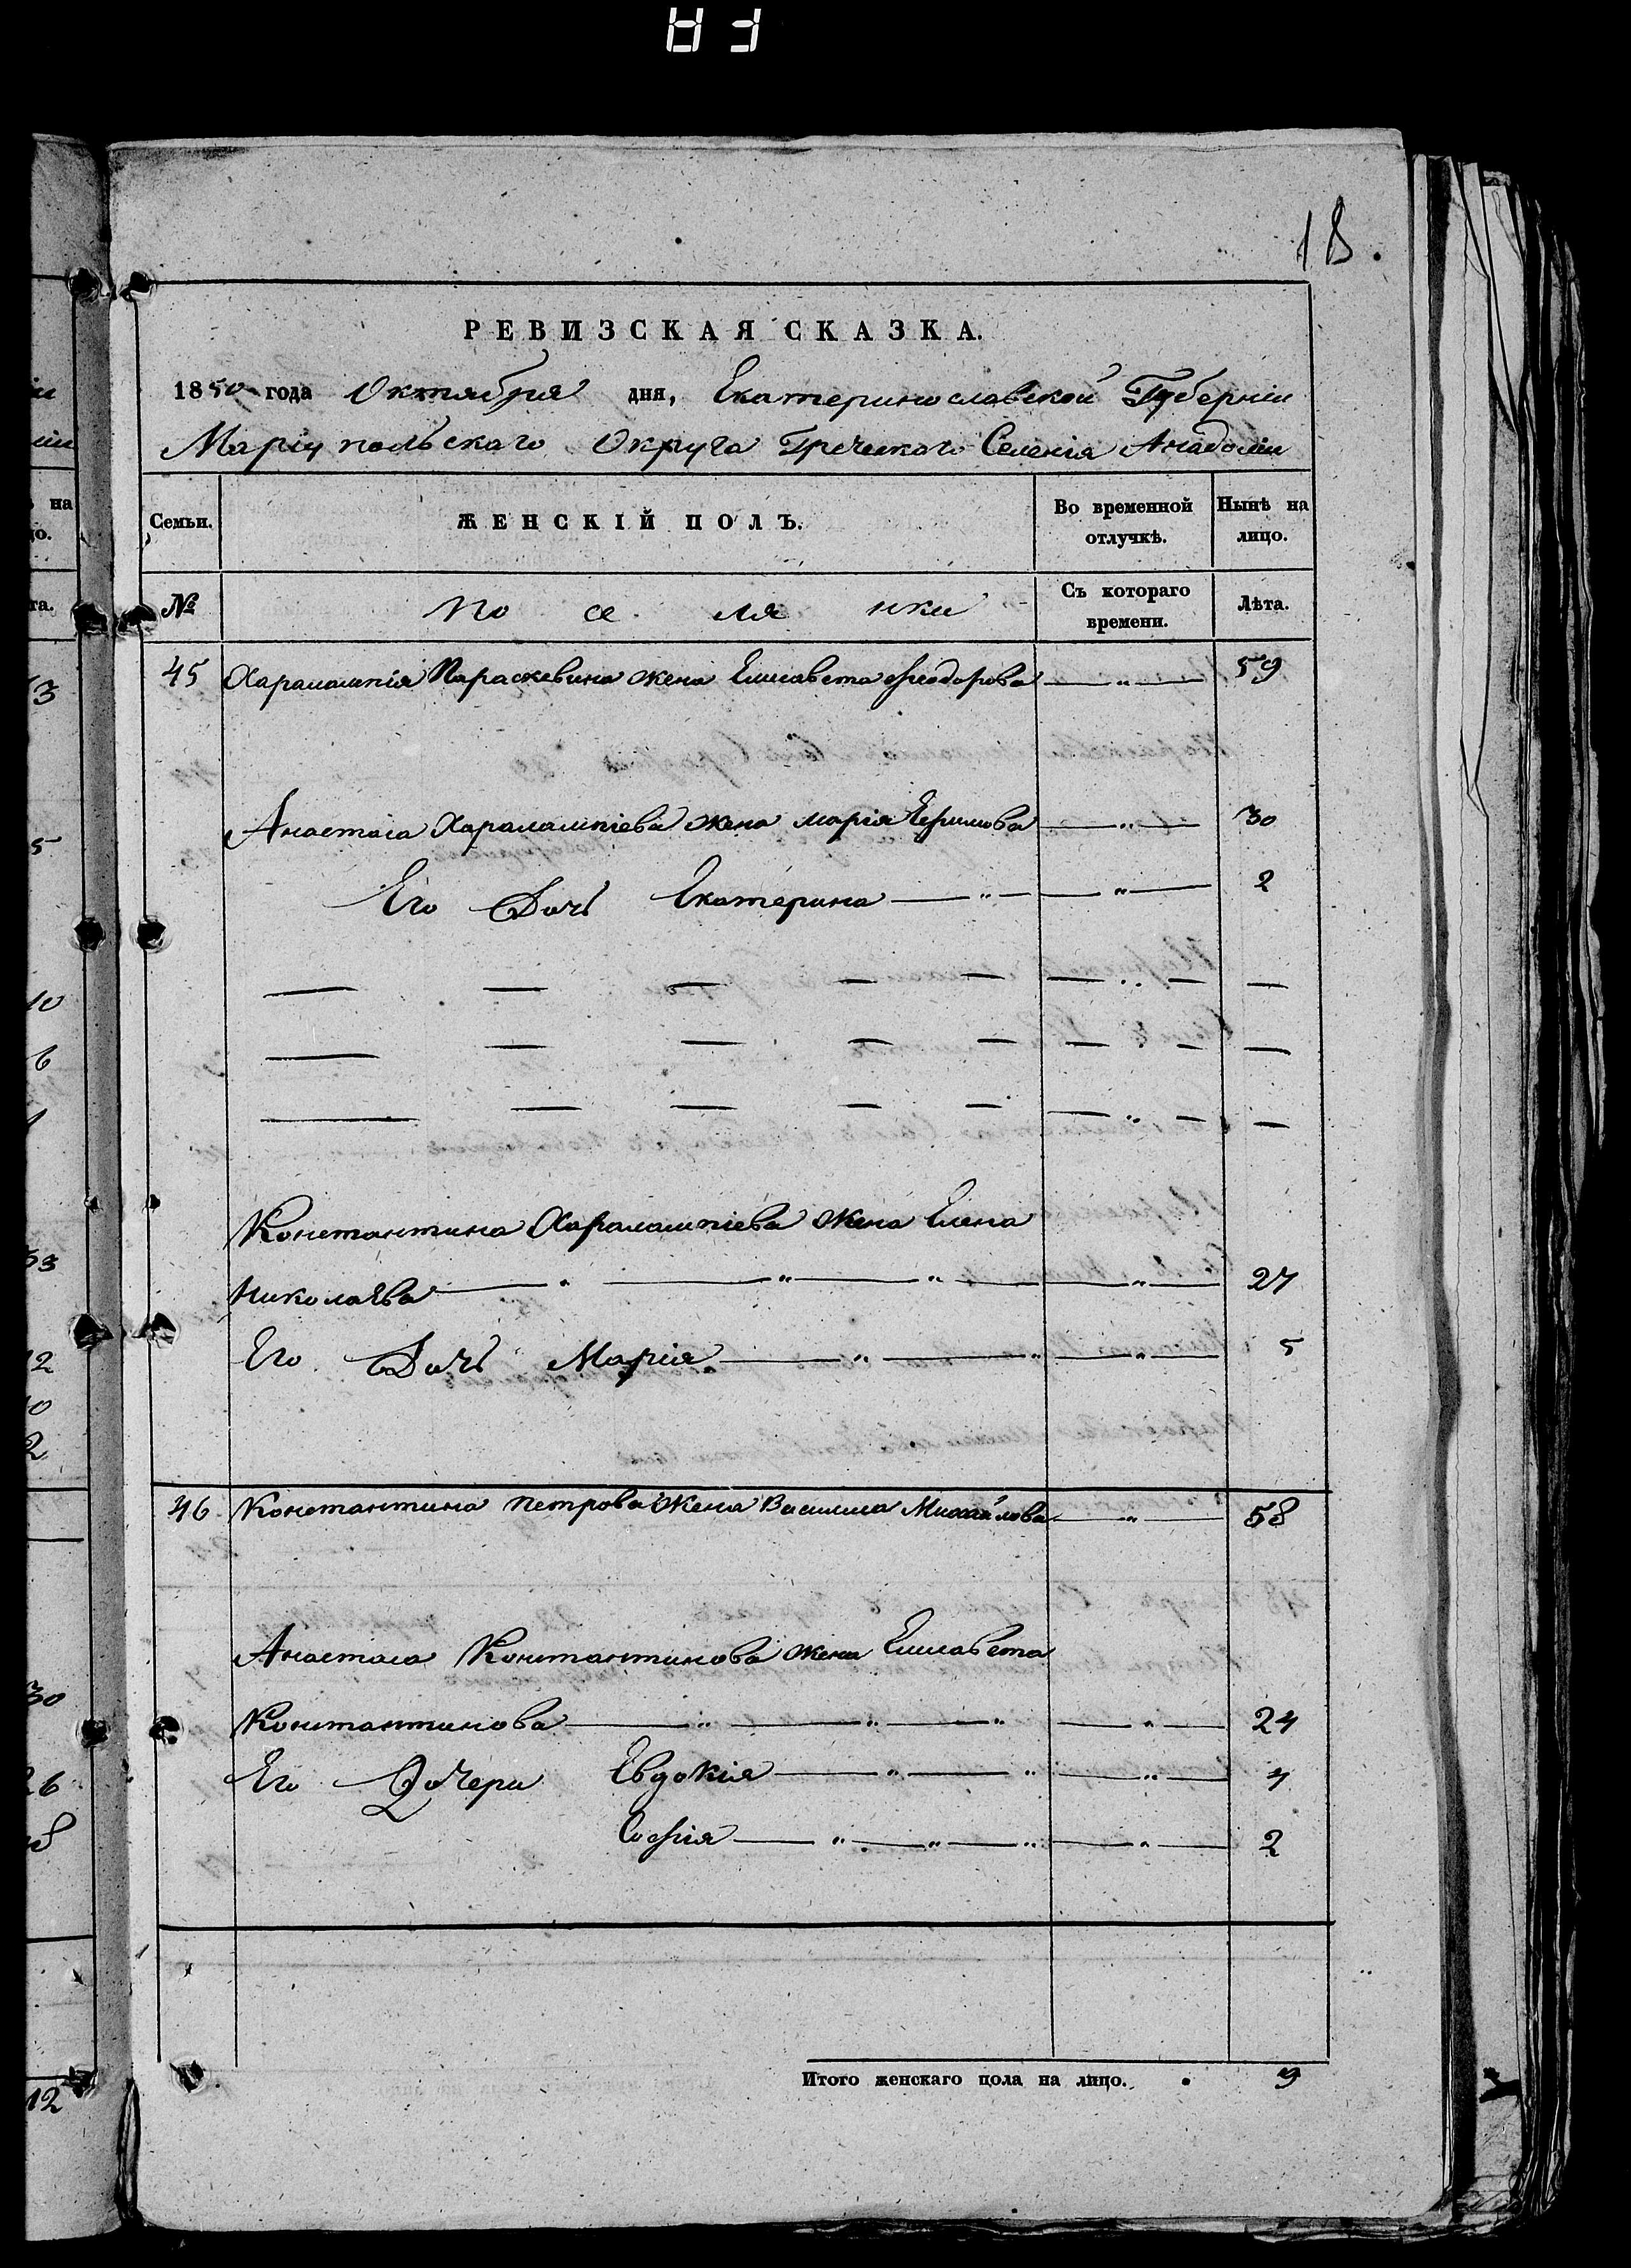 18.
РЕВИЗСКАЯ СКАЗКА.
1850 года Октября дня, Екатеринославской Губерніи
Маріупольскаго Округа Греческаго Селенія Анадоліи
Семьи. ЖЕНСКІЙ ПОЛЪ. Во временной отлучкѣ. Нынѣ на лицо.
№ По се ля нки Съ котораго времени. Лѣта.
45 Харалампія Параскевина жена Елисавета Феодорова — " — 59
Анастаса Харалампіева жена Марія — " — 30
Его Дочь Екатерина — " — — " — 2
Константина Харалампіева жена Елена
Николаева — " — " — " — — " — 27
Его Дочь Марія — " — " — " — 5
46 Константина Петрова жена Василиса Михайлова — " — 58
Анастаса Константинова жена Елисавета
Константинова — " — " — " — " — 24
Его Дочери Евдокія — " — " — " — 4
Софія — " — " — " — " — 2
Итого женскаго пола на лицо. 9